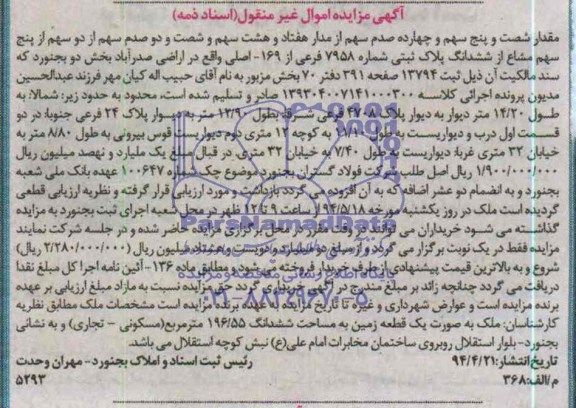 آگهی مزایده اموال غیر منقول(اسناد ذمه)
مقدار شصت و پنج سهم و چهارده صدم سهم از مدار هفتاد و هشت سهم و شصت و دو صدم سهم از دو سهم از پنج
سهم مشاع از ششدانگ پلاک ثبتی شماره ۷۹۵۸ فرعی از ۱۶۹- اصلی واقع در اراضی صدرآباد بخش دو بجنورد که
سند مالکیت آن ذیل ثبت ۱۳۷۹۴ صفحه ۳۹۱ دفتر ۷۰ بخش مزبور به نام آقای حبیب اله کیان مهر فرزند عبدالحسین
مدیون پرونده اجرائی کلاسه ۱۳۹۳۰۴۰۰۷۱۴۱۰۰۰۳۰۰ صادر و تسلیم شده است، محدود به حدود زیر: شمالا: به
طول ۱۴/۲۰ متر دیوار به دیوار پلاک ۴۷۰۸ فرعی شرقا: بطول ۱۲/۹۰ متر به دیوار پلاک ۲۴ فرعی جنوبا: در دو
قسمت اول درب و دیواریست به طول ۱۱/۱۰ به کوچه ۱۲ متری دوم دیواریست قوس بیرونی به طول ۸/۸۰ متر به
خیابان ۳۲ متری غربا: دیواریست به طول ۷/۴۰ به خیابان ۳۲ متری. در قبال مبلغ یک ملیارد و نهصد میلیون ریال
۱/۹۰۰/۰۰۰/۰۰۰ ریال اصل طلب شرکت فولاد گستران بجنورد موضوع چک شماره ۱۰۰۶۴۷ عهده بانک ملی شعبه
بجنورد و به انضمام دو عشر اضافه که به آن افزوده می گردد بازداشت و مورد ارزیابی قرار گرفته و نظریه ارزیابی قطعی
گردیده است ملک در روز یکشنبه مورخه ۹۴/۵/۱۸ از ساعت ۹ تا ۱۲ ظهر در محل شعبه اجرای ثبت بجنورد به مزایده
گذاشته می شود خریداران می توانند در وقت مقرر در محل برگزاری مزایده حاضر شده و در جلسه شرکت نمایند
مزایده فقط در یک نوبت برگزار می گردد و از مبلغ دو ملیارد و دویست و هشتاد میلیون ریال (۲/۲۸۰/۰۰۰/۰۰۰ ریال)
شروع و به بالاترین قیمت پیشنهادی از طرف خریدار فروخته می شود. مطابق ماده ۱۳۶- آئین نامه اجرا کل مبلغ نقدا
دریافت می گردد چنانچه زائد بر مبلغ مندرج در آگهی خریداری گردد حق مزایده نسبت به مازاد مبلغ ارزیابی بر عهده
برنده مزایده است و عوارض شهرداری و غیره تا تاریخ مزایده به عهده برنده مزایده است مشخصات ملک مطابق نظریه
کارشناسان: ملک به صورت یک قطعه زمین به مساحت ششدانگ ۱۹۶/۵۵ مترمربع(مسکونی - تجاری) و به نشانی
بجنورد-بلوار استقلال روبروی ساختمان مخابرات امام علی(ع) نبش کوچه استقلال می باشد.
تاریخ انتشار: ۹۴/۴/۲۱ رئیس ثبت اسناد و املاک بجنورد- مهران وحدت
م/الف: ۳۶۸ ۵۲۹۳
ParsNamadData
۰۲۱-۸۸۳۴۹۶۷۰-۵